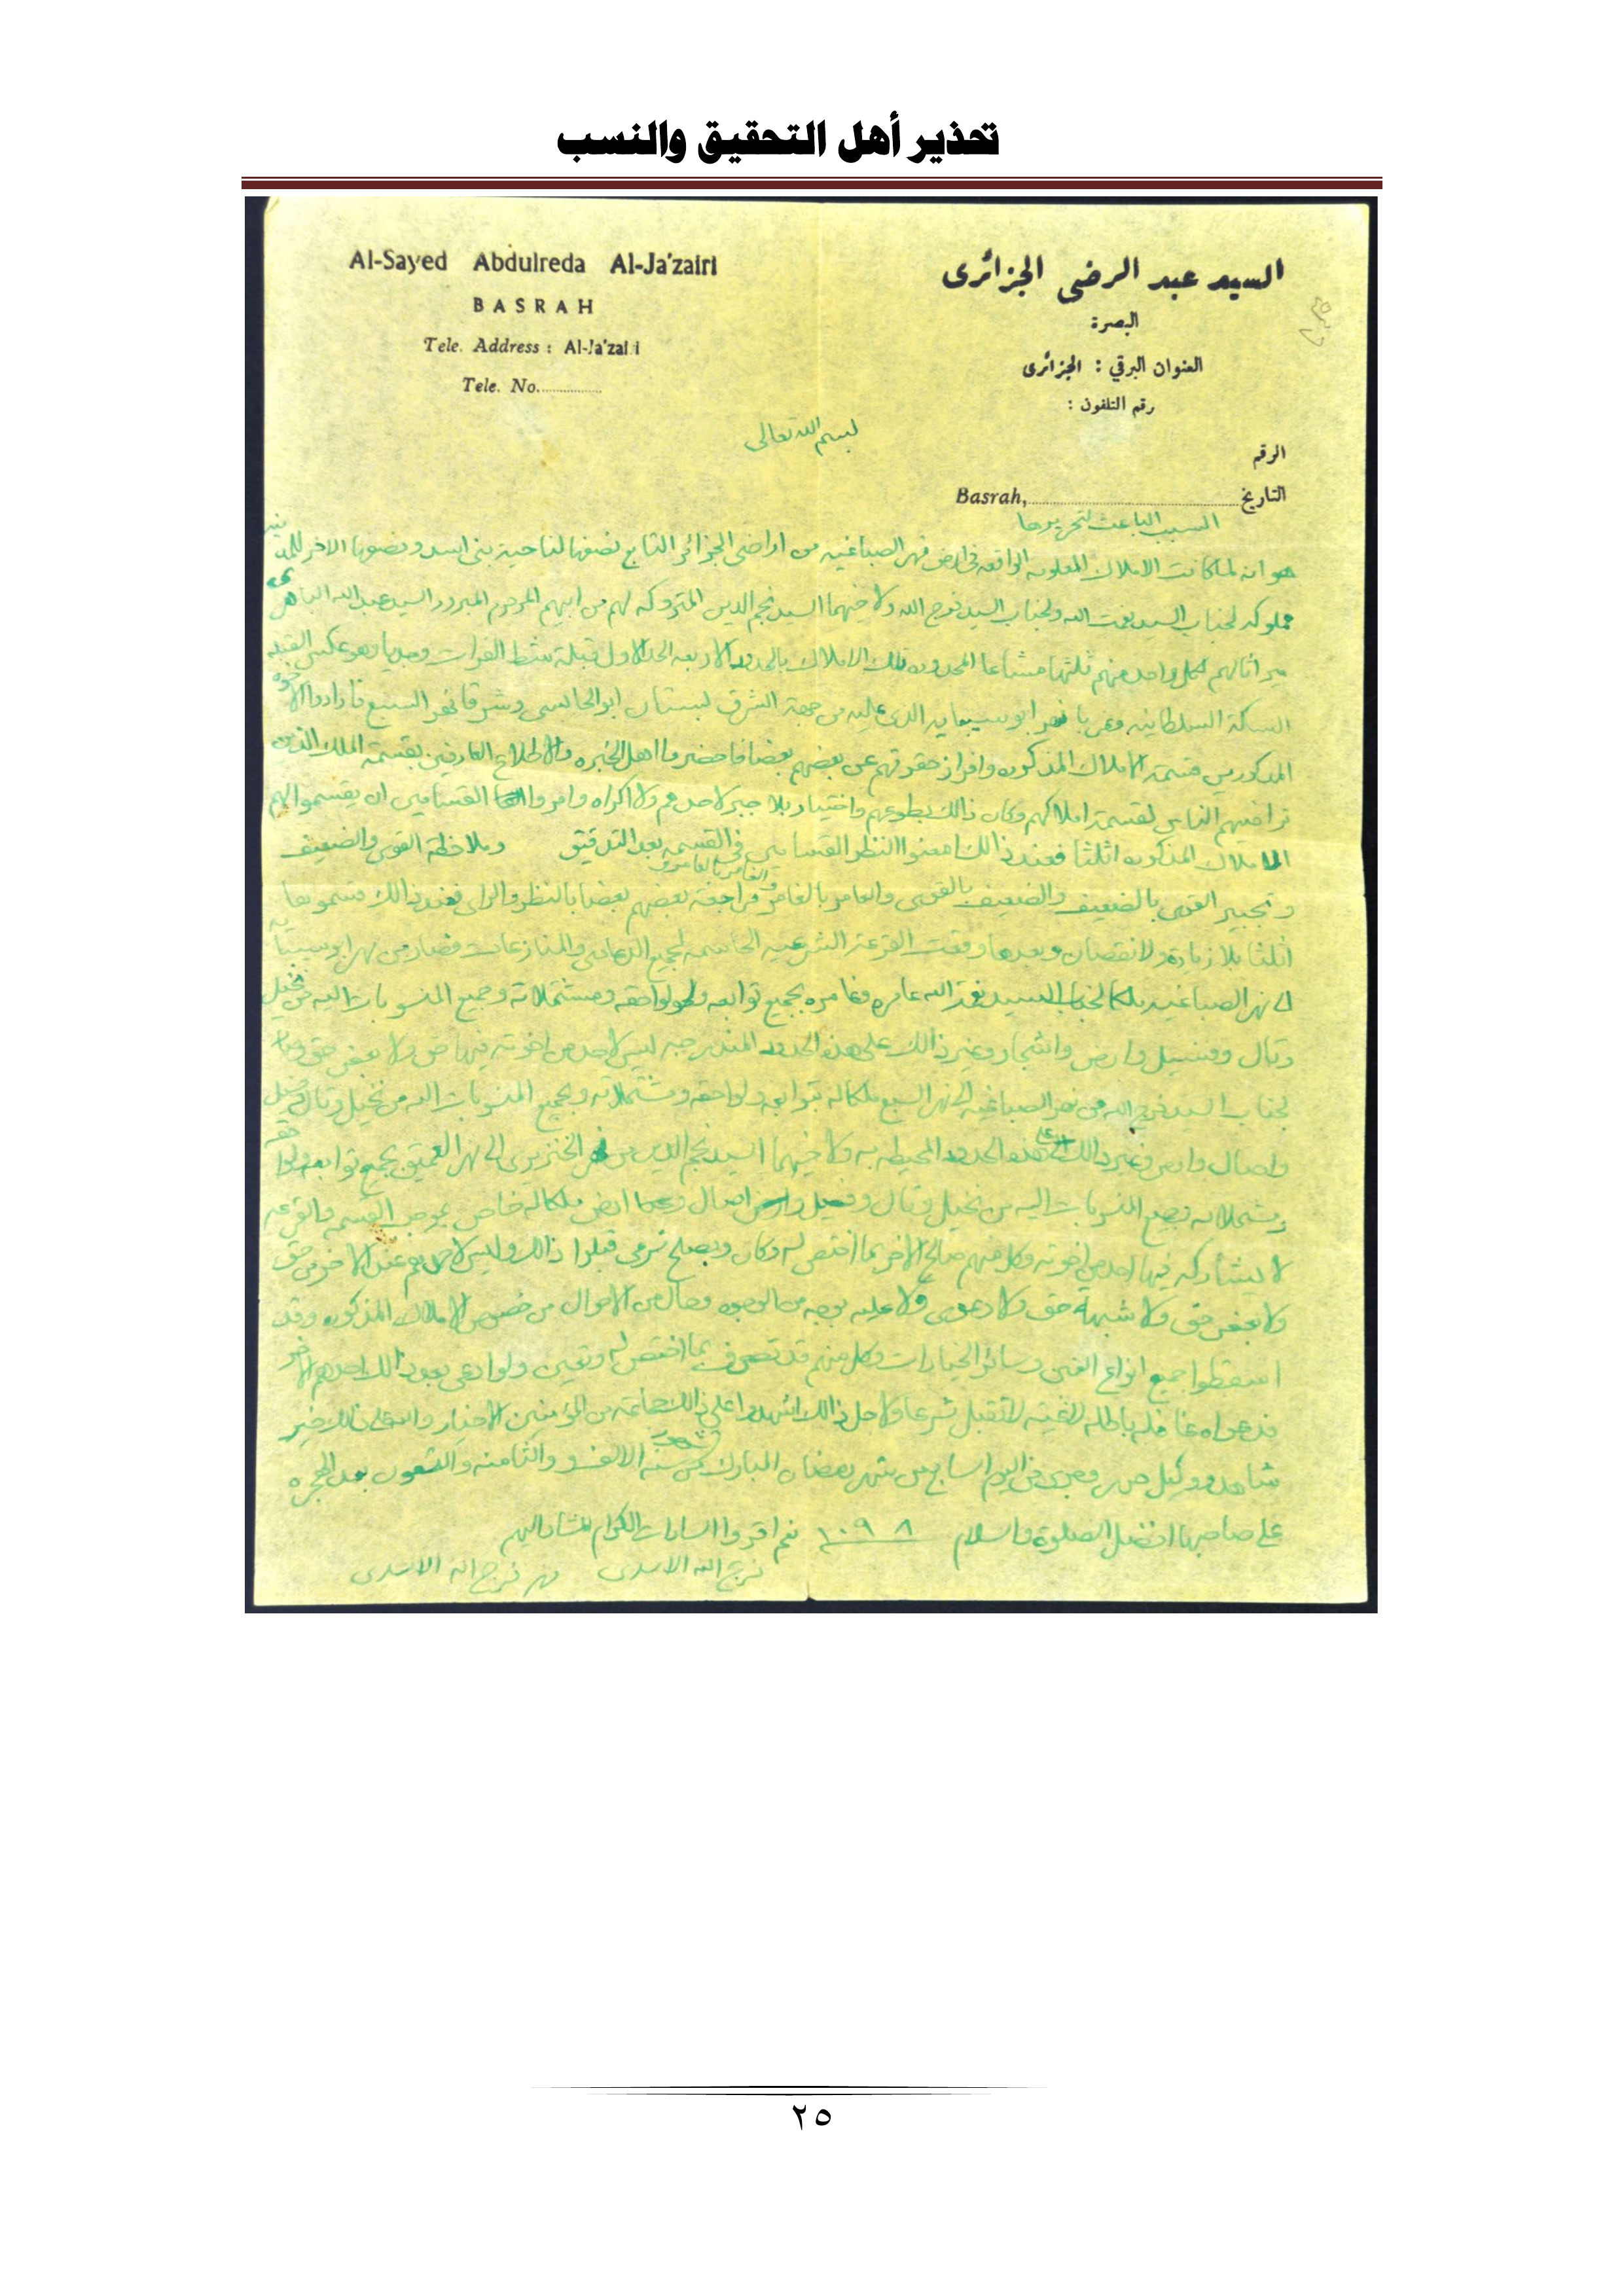 تحذير أهل التحقيق والنسب
Al-Sayed Abdulreda Al-Ja'zairi
السيد عبد الرضى الجزائرى
BASRAH
البصرة
Tele. Address : Al-Ja'zairi
العنوان البرقي : الجزائرى
Tele. No.............
رقم التلفون :
بسم الله تعالى
الرقم
Basrah,........................ التاريخ
السبب الباعث لتحريرها
هو انه لما كانت الاملاك المعلومه الواقعه في ارض نهر الصباغيه من اراضى الجزائر التابع نصفها لناحية بنى اسد ونصفها الاخر
مملوكه لجناب السيد نعمت الله ولجناب السيد فرج الله ولاخيهما السيد نجم الدين المتروكه لهم من ابيهم المرحوم المبرور السيد عبد الله
ميراثا لهم لكل واحد منهم ثلثها مشاعا المحدوده تلك الاملاك بالحدود الاربعه الحد الاول قبلة شط الفرات وهو عكس القبله
السكة السلطانيه نهر ابو سبايه الذى عليه من جهة الشرق بستان ابو الجالسى وشرقا نهر السبع فارادوا الاخوه
المذكورين قسمة الاملاك المذكوره وافراز حقوقهم عن بعضهم بعضا فاحضروا اهل الخبره والاطلاع العارفين بقسمة الملك الذين
تراضيهم الناس لقسمة املاكهم وكان ذالك بطوعهم واختيار بلا جبر لاحدهم ولا اكراه وامروا القسامين ان يقسموا لهم
الاملاك المذكوره اثلثا فعند ذالك امعنوا النظر القسامين في القسمه بعد التدقيق وملاحظة القوى والضعيف
وتجبير القوى بالضعيف والضعيف بالقوى والعامر بالغامر والغامر بالعامر ومراجعة بعضهم بعضا بالنظر والراى فعند ذالك قسموها
اثلثا بلا زيادة ولا نقصان وبعدها وقعت القرعة الشرعيه الحاسمه لجميع الدعاوى والمنازعات فصار من نهر ابو سبايه
الى نهر الصباغيه ملكا لجناب السيد نعمة الله عامره وغامره بجميع توابعه ولواحقه ومشتملاته وجميع المنسوبات اليه من نخيل
وتال وفسيل وارض واشجار وغير ذالك على هذه الحدود المندرجه ليس لاحد من اخوته فيها حق ولا بعض حق وصار
لجناب السيد فرج الله من نهر الصباغيه الى نهر السبع ملكا له بتوابعه ولواحقه ومشتملاته وبجميع المنسوبات اليه من نخيل وتال وفسيل
واصال وارض وغير ذالك على هذه الحدود المحيطه به ولاخيهما السيد نجم الدين من نهر الخنزيرى الى نهر العميق بجميع توابعه ولواحقه
ومشتملاته وجميع المنسوبات اليه من نخيل وتال وفسيل واصال ارض ملكا له خاص بموجب القسمه والقرعه
لا يشاركه فيها احد من اخوته وكل منهم صالح الاخر بما اختص له وكان وبصلح شرعى قبلوا ذالك وليس لاحدهم عند الاخر من حق
ولا بعض حق ولا شبهة حق ولا دعوى ولا علبه بوجه من الوجوه وحال من الاحوال من خصوص الاملاك المذكوره وقد
اسقطوا جميع انواع الغبن وسائر الخيارات وكل منهم قد تصرف بما اختص له وتعين ولو ادعى بعد ذالك احدهم الاخر
فدعواه باطله لاغيه لا تقبل شرعا ولاجل ذالك اشهدوا على ذالك جماعة من المؤمنين الاخيار والله على ذالك خير
شاهد ووكيل حرر وجرى في اليوم السابع من شهر رمضان المبارك من شهور سنة الالف والثامنه والتسعون بعد الهجره
على صاحبها افضل الصلوة والسلام ١٠٩٨ نعم اقروا السادات الكرام المشار اليهم
فرج الله الاسدى مهر فرج الله الاسدى
٢٥